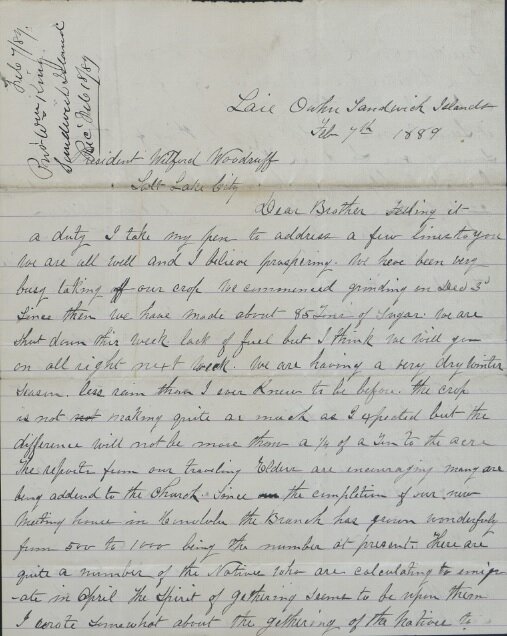 Feb 7/89.
Pres Wm King
Sandwich Islands
Rec' Feb 18/89
Laie Oahu Sandwich Islands
Feb 7th 1889
President Wilford Woodruff
Salt Lake City
Dear Brother Feeling it
a duty I take my pen to address a few lines to you
We are all well and I believe prospering. We have been very
busy taking off our crop we commenced grinding on Dec 3d
Since then we have made about 85 Tons of Sugar. We are
shut down this week lack of fuel but I think we will run
on all right next week. We are having a very dry Winter
Season. less rain than I ever knew to be before. the crop
is not not making quite as much as I expected but the
difference will not be more than a ¼ of a Ton to the acre
The reports from our traveling Elders are encouraging many are
being addend to the Church. Since the completion of our new
meeting house in Honolulu the Branch has grown wonderfuly
from 500 to 1000 being the number at present. There are
quite a number of the Natives who are calculating to emigr-
ate in April The Spirit of gethering seems to be upon them
I wrote somewhat about the gethering of the Natives to